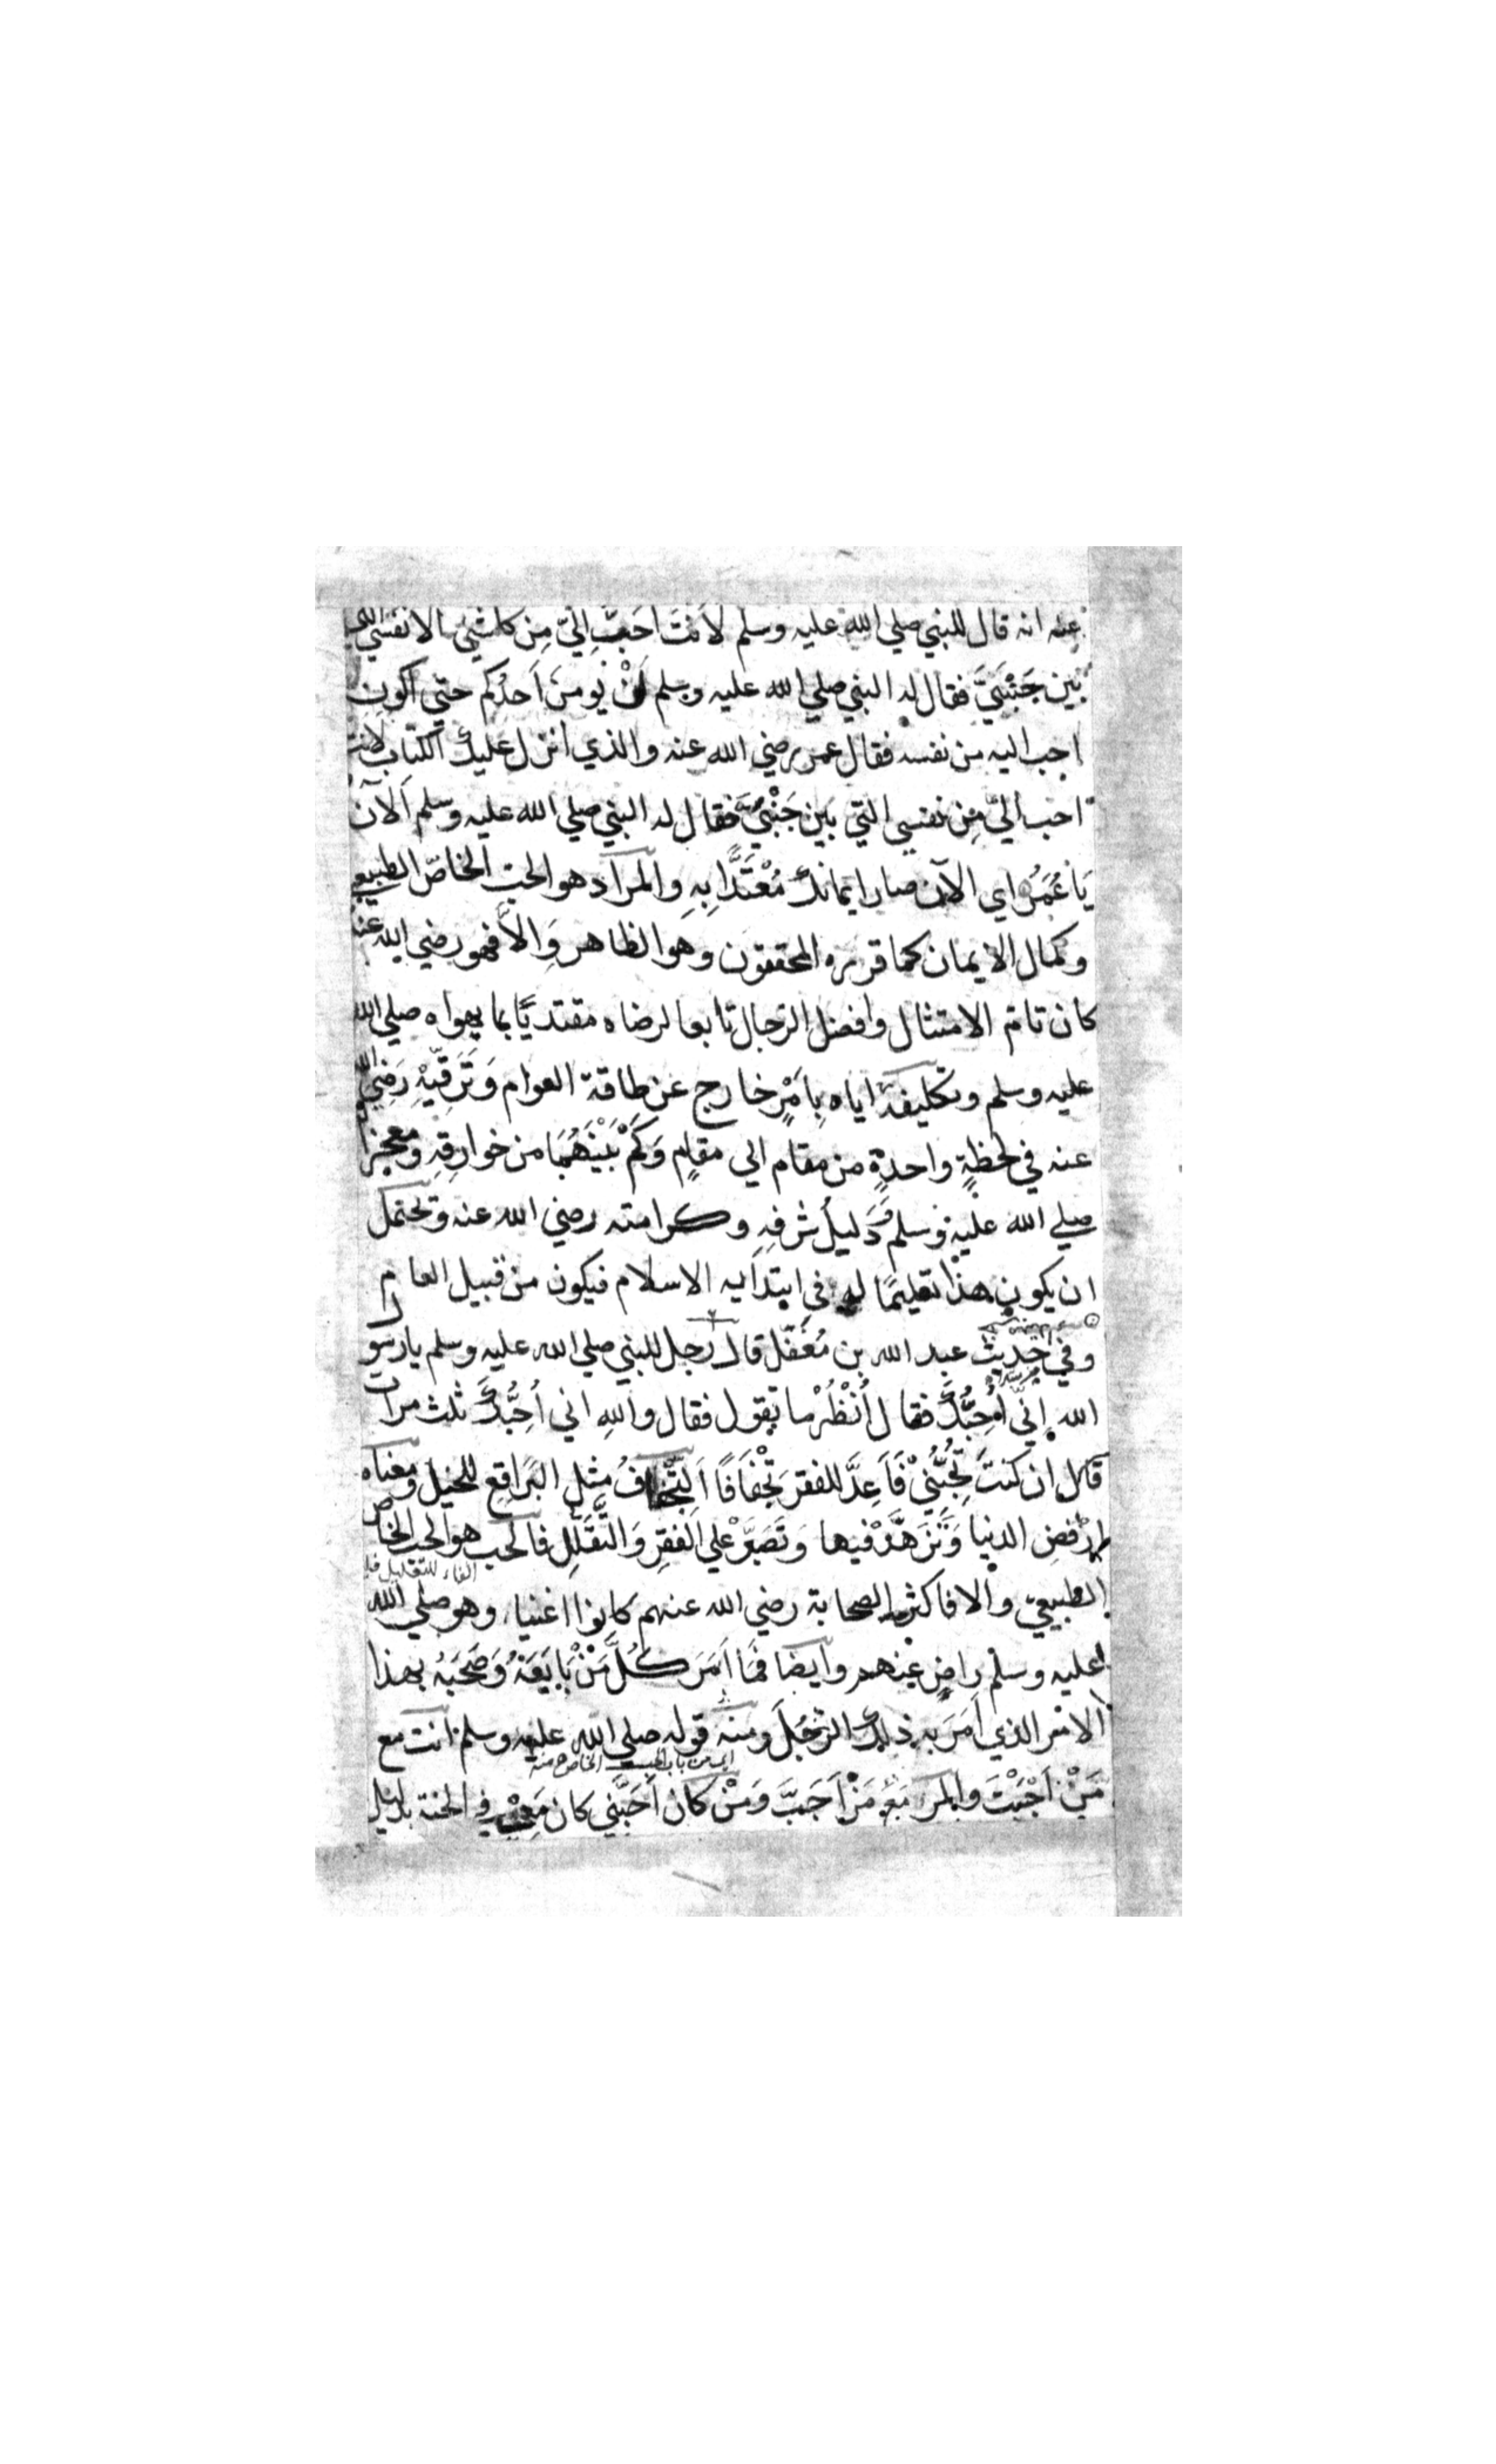 عنه انه قال للنبي صلي الله عليه وسلم لَاَنتَ احَبُّ اِليّ مِن كل شئ الا نفسي التي
بين جَنْبَيَّ فقال له النبي صلي الله عليه وسلم لَنْ يومنَ اَحدُكم حتي اكون
احب اليه من نفسه فقال عمر رضي الله عنه والذي انزل عليك الكتاب لانت
احب اليّ مِن نفسي التي بين جَنْبَيَّ فقال له النبي صلي الله عليه وسلم اَلآن
يَا عُمَرُ اي الآن صار ايمانك مُعْتَدًّا بِهِ والمراد هو الحب الخاصّ الطبيعي
وكمال الايمان كما قرره المحققون وهو الظاهر وَالاَّ فهو رضي الله عنه
كان تام الامتثال وافضل الرجال تابعا لرضاه مقتديًا بما يهواه صلي الله
عليه وسلم وتكليفه اياه بِاَمْرٍ خارج عن طاقة العوام وَتَرَقِّيْهِ رَضِيَ الله
عنه في لحظةٍ واحدةٍ من مقام الي مقامٍ وَكَمْ بَيْنَهُمَا من خوارقِهِ ومعجزا
صلي الله عليه وسلم وَدَليلُ شرفِهِ وكرامته رضي الله عنه ويحتمل
ان يكون هذا تعليمًا له في ابتدايه الاسلام فيكون من قبيل العام
وفي حديث عبد الله بن مُغَفَّل قال رجل للنبي صلي الله عليه وسلم يا رسول
الله اِنّي اُحِبُّكَ فقال اُنْظُرْ ما تقول فقال واللهِ اني اُحِبُّكَ ثلث مرات
قال ان كنتَ تُحِبُّنِيْ فَاَعِدَّ للفقر تِجْفَافًا اَلتِّجْفافُ مِثل البَرَاقِعِ للخيل ومعناه
اُرْفض الدنيا وَتَزَهَّدْ فيها وَتَصَبَّرْ علي الفقرِ وَالتَّقَلُّلِ فالحب هو الحب الخاص
الفاء للتعليل
الطبيعيّ والا فاكثر الصحابة رضي الله عنهم كانوا اغنياء وهو صلي الله
عليه وسلم راضٍ عنهم وايضا فَمَا اَمَرَ كُلَّ مَنْ بَايَعَهُ وَصَحِبَهُ بهذا
الامر الذي اَمَرَ به ذلك الرَّجُلَ ومنه قوله صلي الله عليه وسلم انت مع
اي من باب الحب الخاص منه
مَنْ اَحْبَبْتَ والمرء مَعَ مَنْ اَحَبَّ وَمَنْ كان اَحَبَّنِي كان مَعِيْ في الجنة بدليل